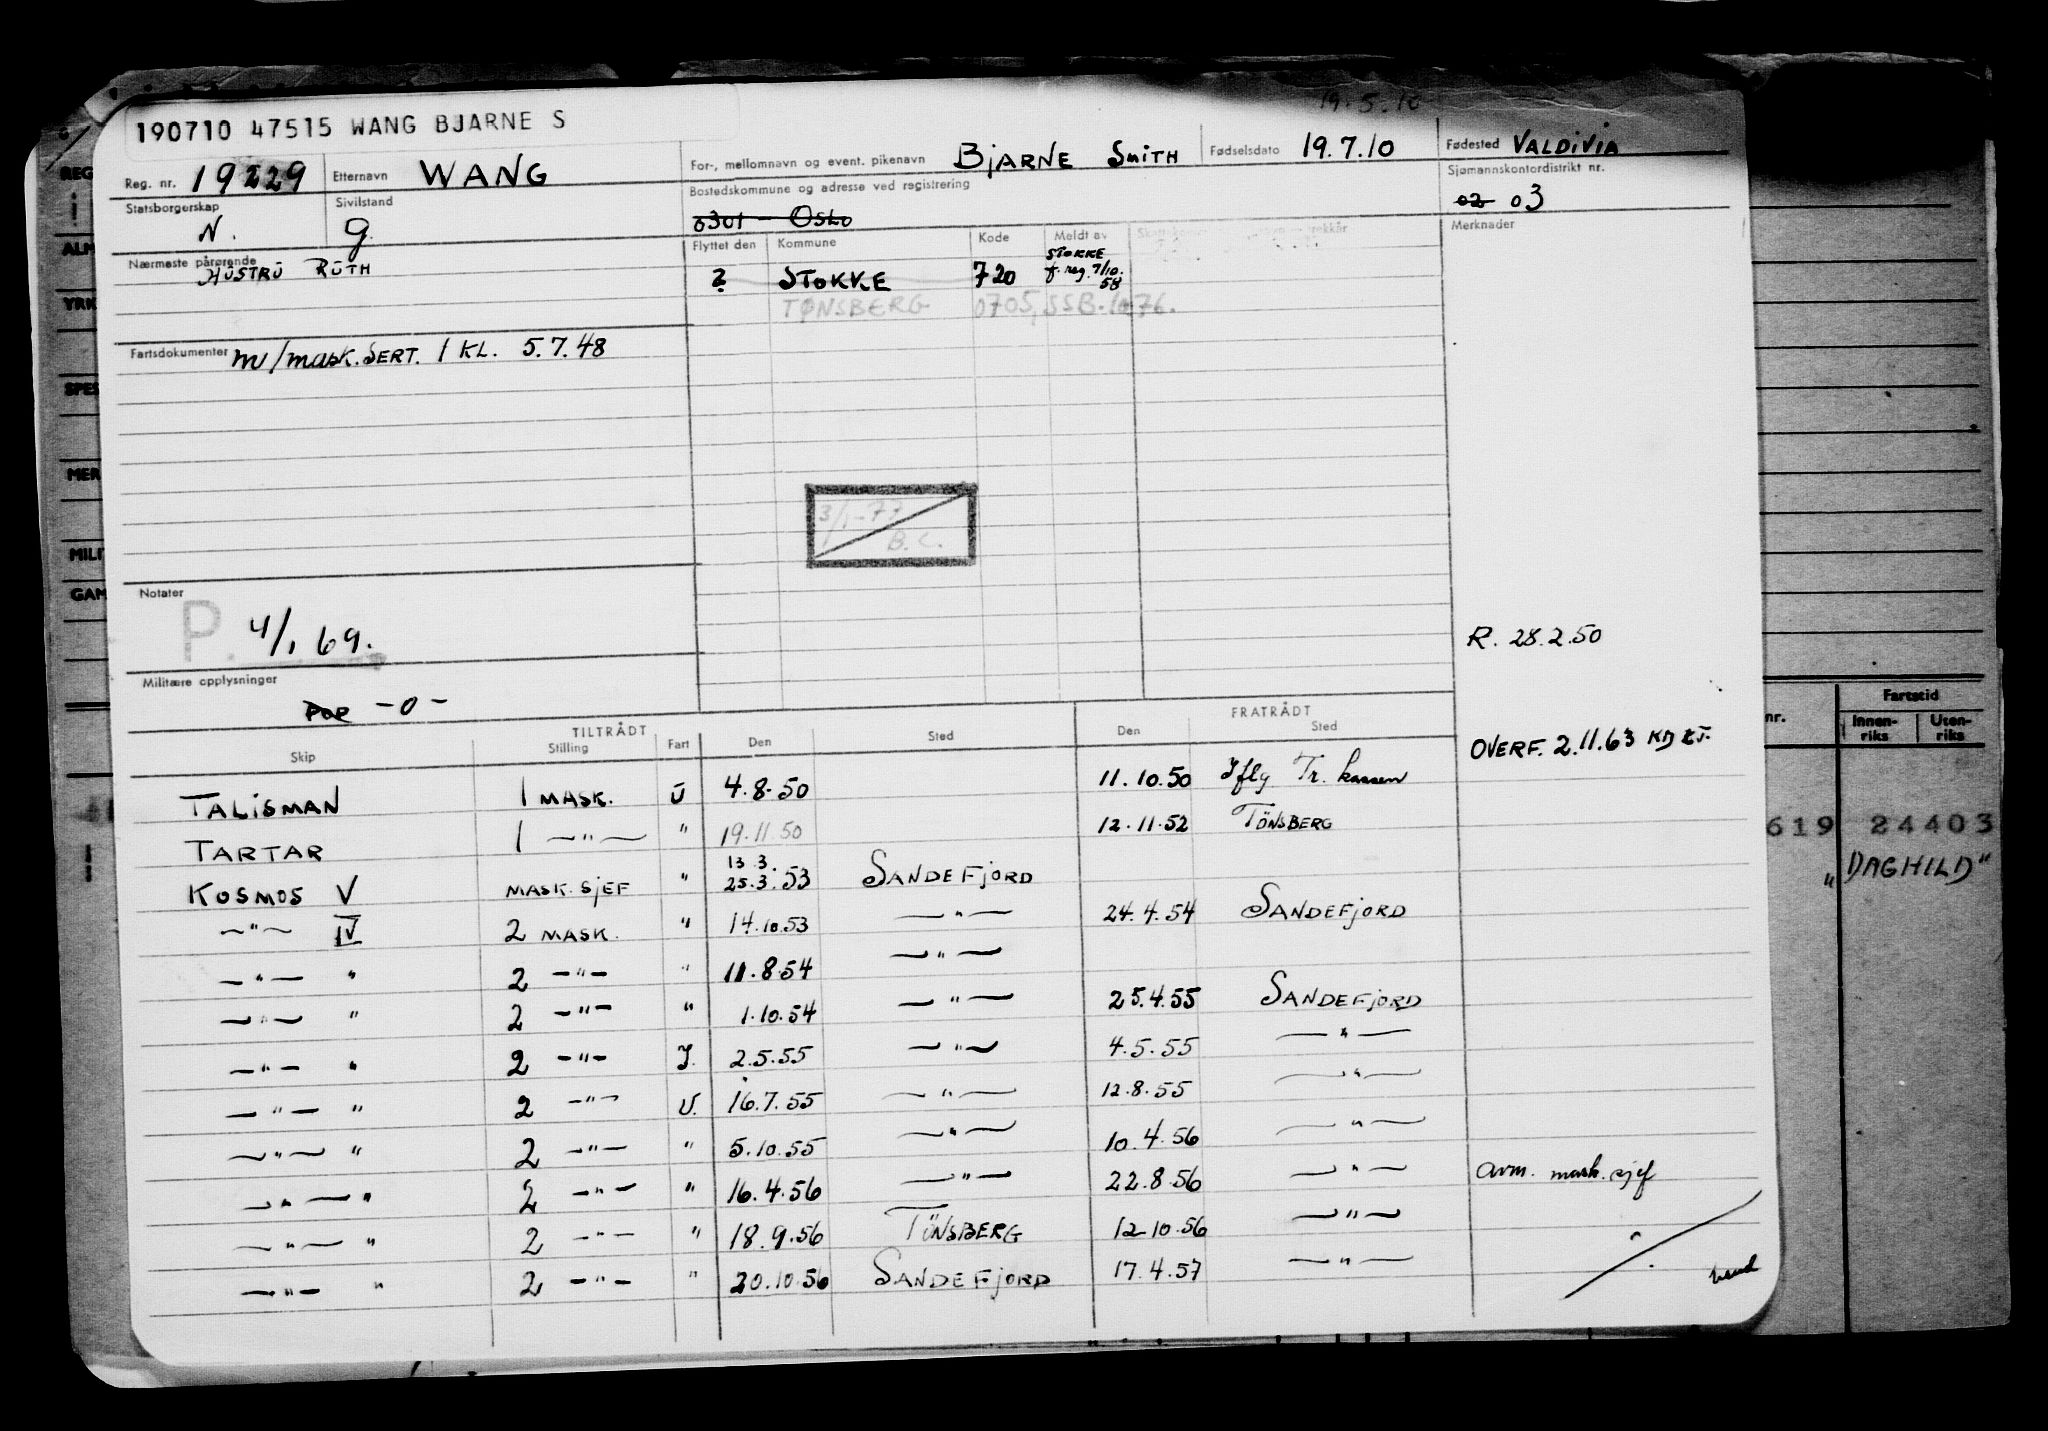 19.5.10
190710 47515 WANG BJARNE S
Reg. nr. 19229 Etternavn WANG For-, mellomnavn og event. pikenavn BJARNE SMITH Fødselsdato 19.7.10 Fødested VALDIVIA
Statsborgerskap N. Sivilstand G. Bostedskommune og adresse ved registrering 0301 - OSLO Sjømannskontordistrikt nr. 02 03
Nærmeste pårørende HUSTRU RUTH Flyttet den Kommune Kode Meldt av Merknader
? STOKKE 720 STOKKE f. reg. 7/10. 58
TØNSBERG 0705, SSB.
Fartsdokumenter m/mask. SERT. 1 KL. 5.7.48
3/1-77
B.C.
Notater
P. 4/1 69.
R. 28.2.50
Militære opplysninger
-0-
OVERF. 2.11.63
TILTRÅDT FRATRÅDT
Skip Stilling Fart Den Sted Den Sted
TALISMAN 1 MASK. U 4.8.50 11.10.50 Tr. kassen
TARTAR 1 —"— " 19.11.50 12.11.52 TÖNSBERG
KOSMOS V MASK. SJEF " 13 3. 25.3.53 SANDEFJORD
—"— IV 2 MASK. " 14.10.53 —"— 24.4.54 SANDEFJORD
—"— " 2 —"— " 11.8.54 —"—
—"— " 2 —"— " 1.10.54 —"— 25.4.55 SANDEFJORD
—"— " 2 —"— I. 2.5.55 —"— 4.5.55 —"—
—"— " 2 —"— U. 16.7.55 —"— 12.8.55 —"—
—"— " 2 —"— " 5.10.55 —"— 10.4.56 —"—
—"— " 2 —"— " 16.4.56 —"— 22.8.56 —"— avm. mask.sjef
—"— " 2 —"— " 18.9.56 TÖNSBERG 12.10.56 —"—
—"— " 2 —"— " 20.10.56 SANDEFJORD 17.4.57 —"—
REG
ALM
YRK
SPES
MER
MILI
GAM
nr. Fartstid
Innen-riks Uten-riks
619 24403
" DAGHILD"